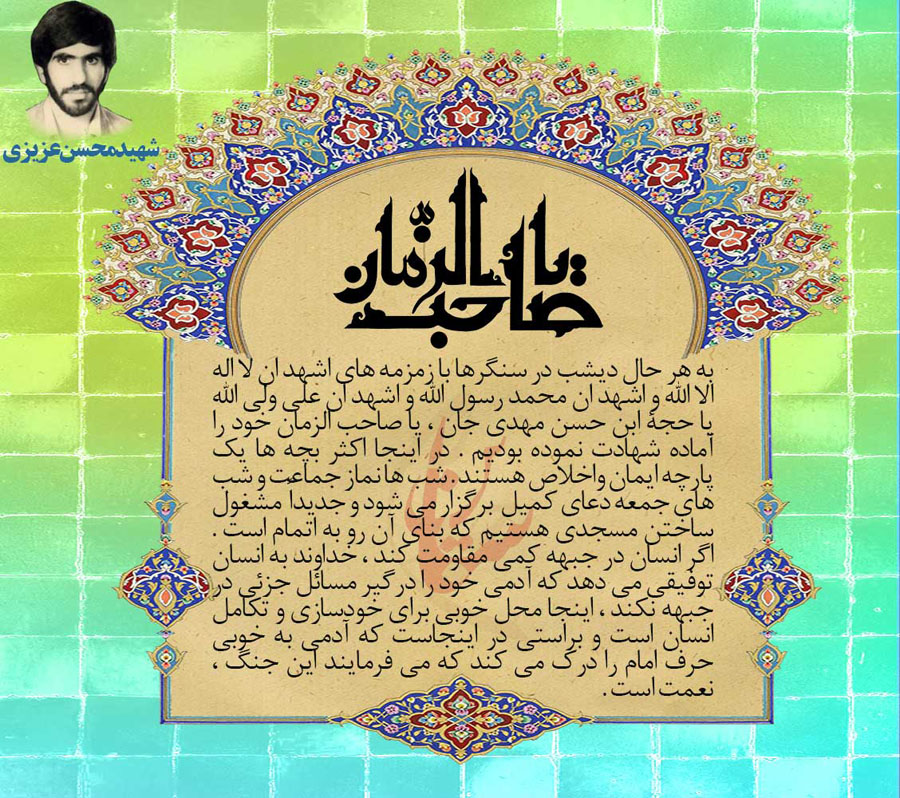 شهید محسن عزیزی
یا صاحب الزمان
به هر حال دیشب در سنگرها با زمزمه های اشهد ان لا اله
الا الله و اشهد ان محمد رسول الله و اشهد ان علی ولی الله
یا حجة ابن حسن مهدی جان ، یا صاحب الزمان خود را
آماده شهادت نموده بودیم . در اینجا اکثر بچه ها یک
پارچه ایمان واخلاص هستند. شب ها نماز جماعت و شب
های جمعه دعای کمیل برگزار می شود و جدیداً مشغول
ساختن مسجدی هستیم که بنای آن رو به اتمام است .
اگر انسان در جبهه کمی مقاومت کند ، خداوند به انسان
توفیقی می دهد که آدمی خود را درگیر مسائل جزئی در
جبهه نکند ، اینجا محل خوبی برای خودسازی و تکامل
انسان است و براستی در اینجاست که آدمی به خوبی
حرف امام را درک می کند که می فرمایند این جنگ ،
نعمت است .